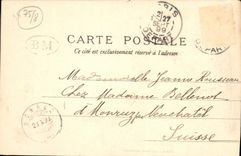 75/8
PARIS
BM
CARTE POSTALE
Ce côté est exclusivement réservé à l'adresse
Mademoiselle Jeanne Rousseau
Chez Madame Bellenot
à Monruz Neuchatel
Suisse